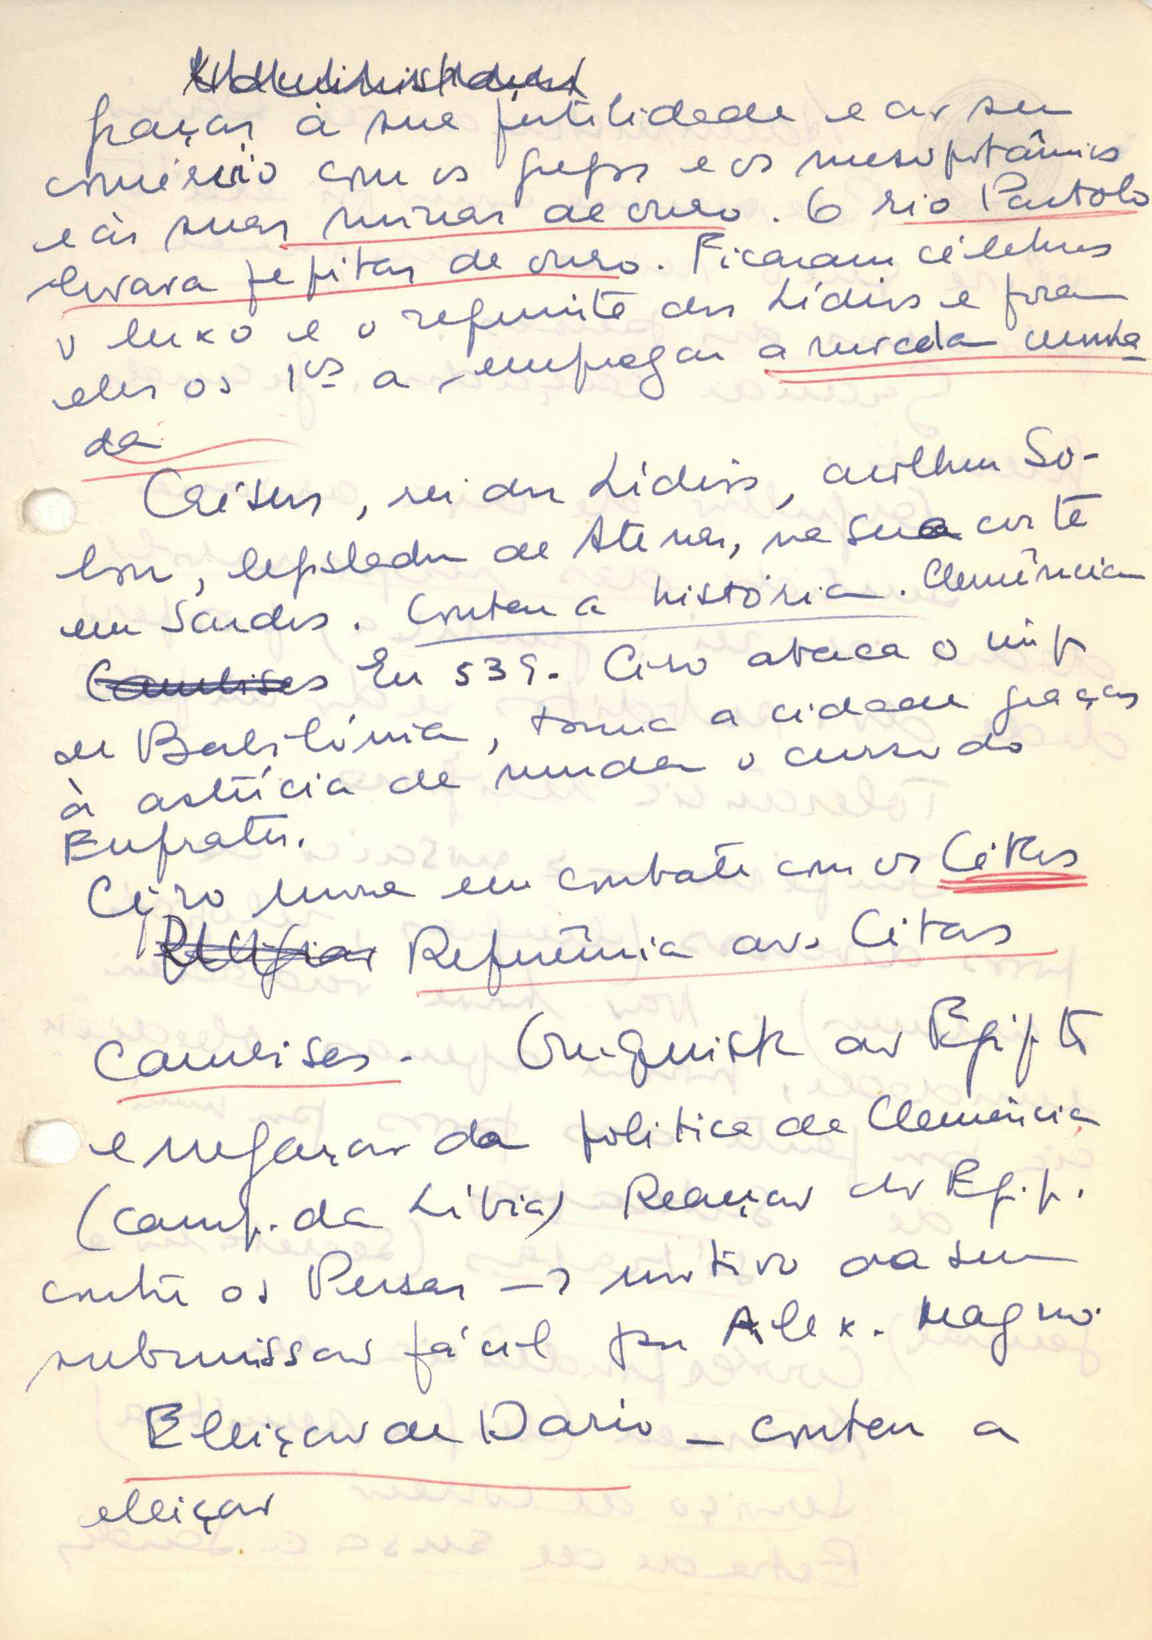 Administração
graças à sua fertilidade e ao seu
comércio com os gregos e os mesopotâmios
e às suas minas de ouro. O rio Pactolo
levava pepitas de ouro. Ficaram célebres
o luxo e o requinte dos Lídios e foram
eles os 1os a empregar a moeda cunha
da
Crésus, rei dos Lídios, acolheu So-
lon, legislador de Atenas, na sua corte
em Sardes. Contar a história. Clemência
Cambises Em 539. Ciro ataca o imp
de Babilónia, toma a cidade graças
à astúcia de mudar o curso do
Eufrates.
Ciro morre em combate com os Citas
Religião Referência aos Citas
Cambises - Conquista do Egipto
e negação da politica de Clemência
(camp. da Líbia) Reação do Egip.
contra os Persas → motivo da sua
submissão fácil por Alex. Magno.
Eleição de Dario - contar a
eleição